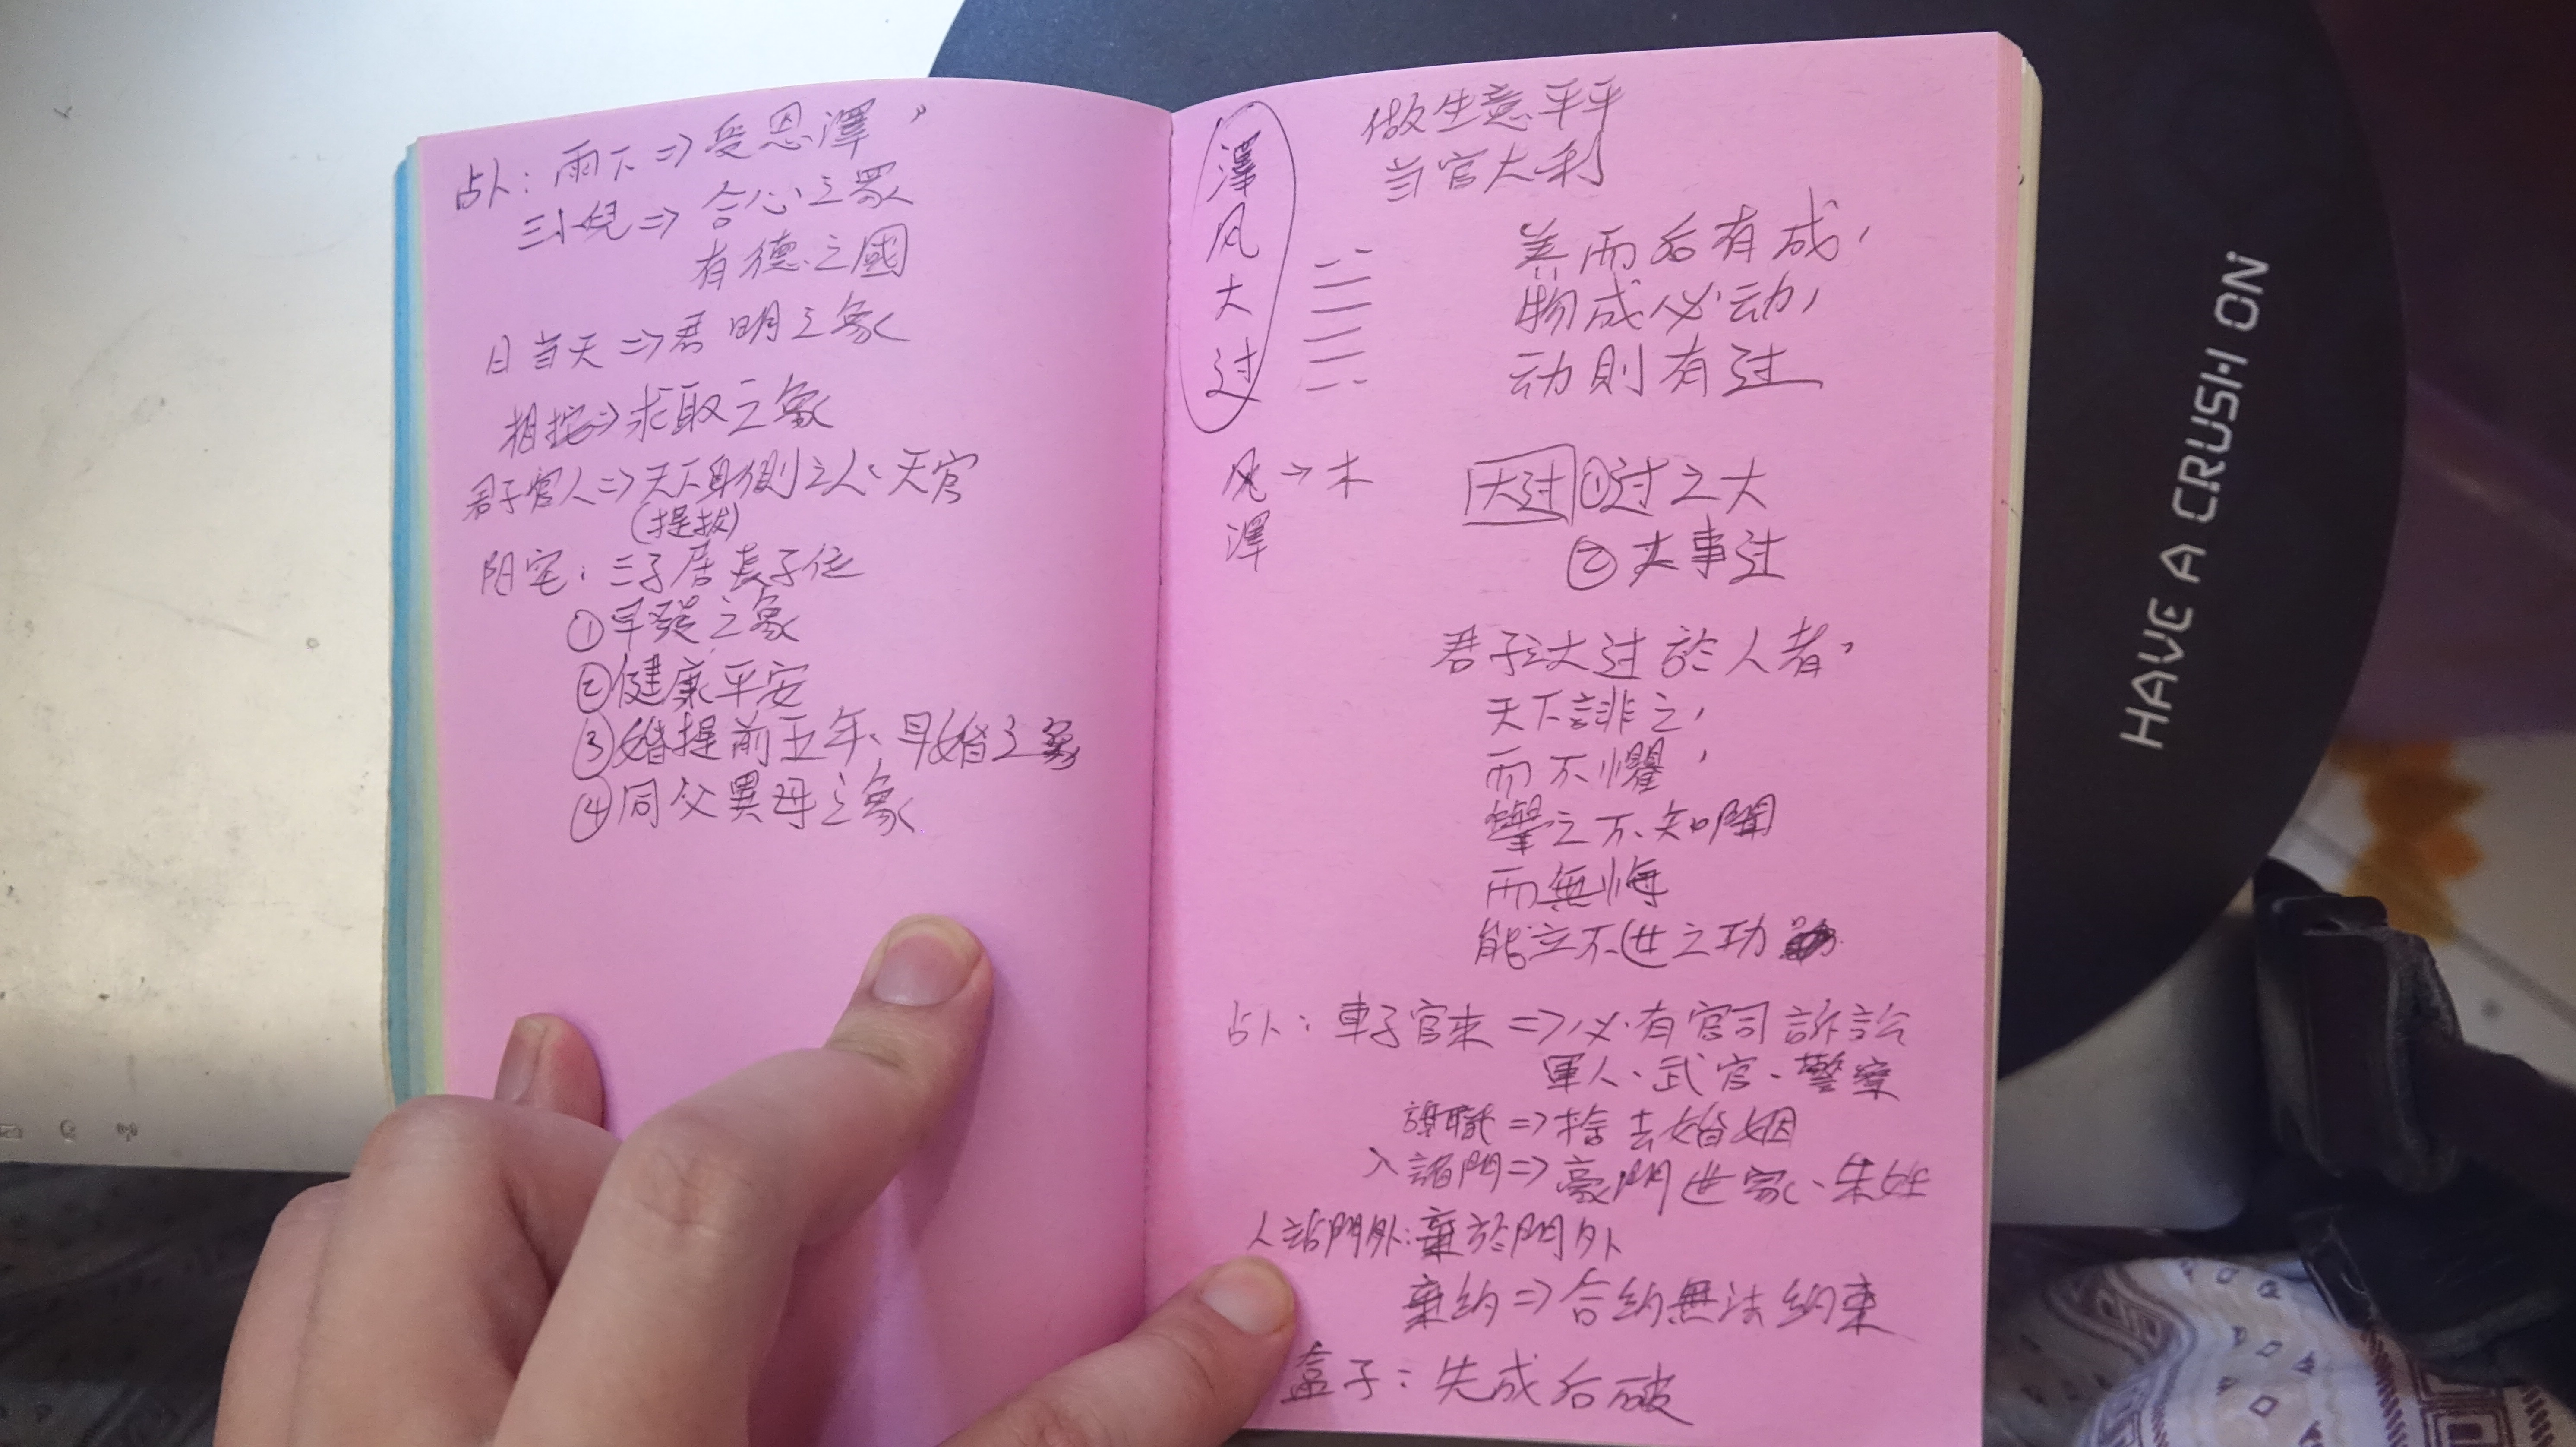 占卜：雨下⇒受恩澤，
三小兒⇒合心之眾
有德之國
日當天⇒君明之象
相挖⇒求取之象
君子官人⇒天下身側之人、天官
(提拔)
阳宅：三子居長子位
①早發之象
②健康平安
③婚提前五年、早婚之象
④同父異母之象
澤风大过
做生意平平
当官大利
养而后有成，
物成必动，
动則有过
风→木
澤
大过①过之大
②大事过
君子之大过於人者，
天下誹之，
而不懼，
譽之不知聞
而無悔
能立不世之功
占卜：車子官来⇒必有官司訴訟
軍人、武官、警察
⇒捨去婚姻
入諸門⇒豪門世家、朱姓
門外：棄於門外
棄約⇒合約無法約束
盒子：先成后破
HAVE A CRUSH ON